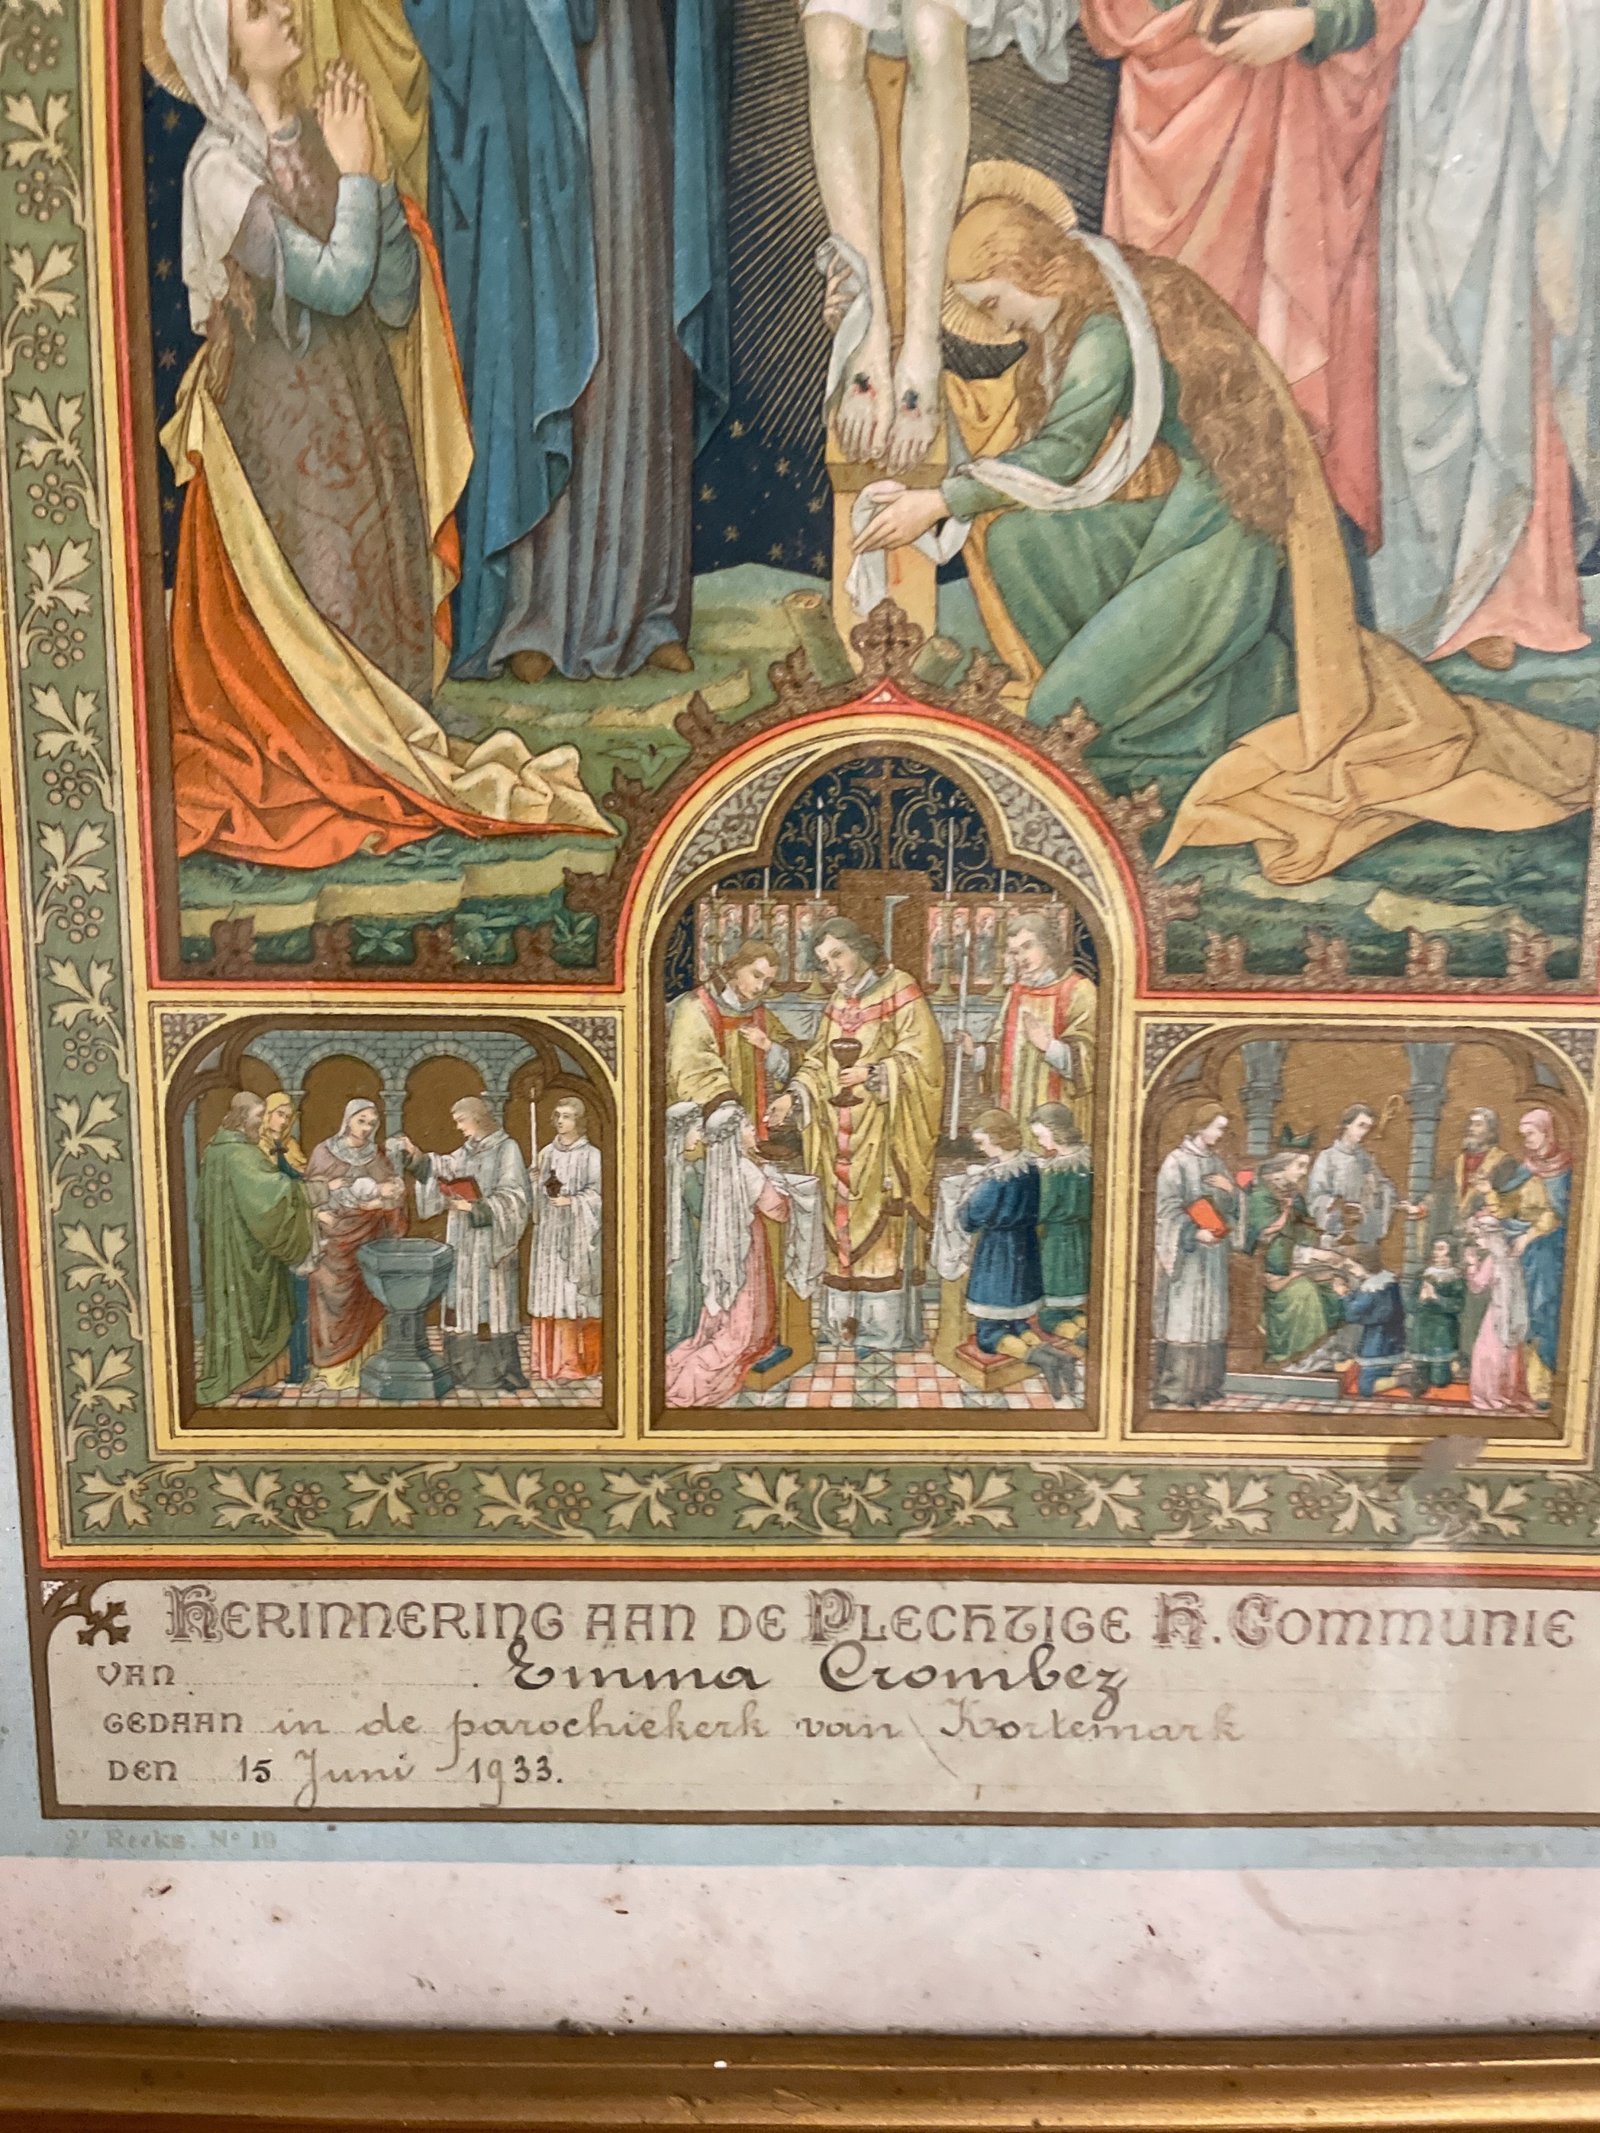 Herinnering aan de Plechtige H. Communie
van Emma Crombez
gedaan in de parochiekerk van Kortemark
den 15 Juni 1933.
2e Reeks. No 19